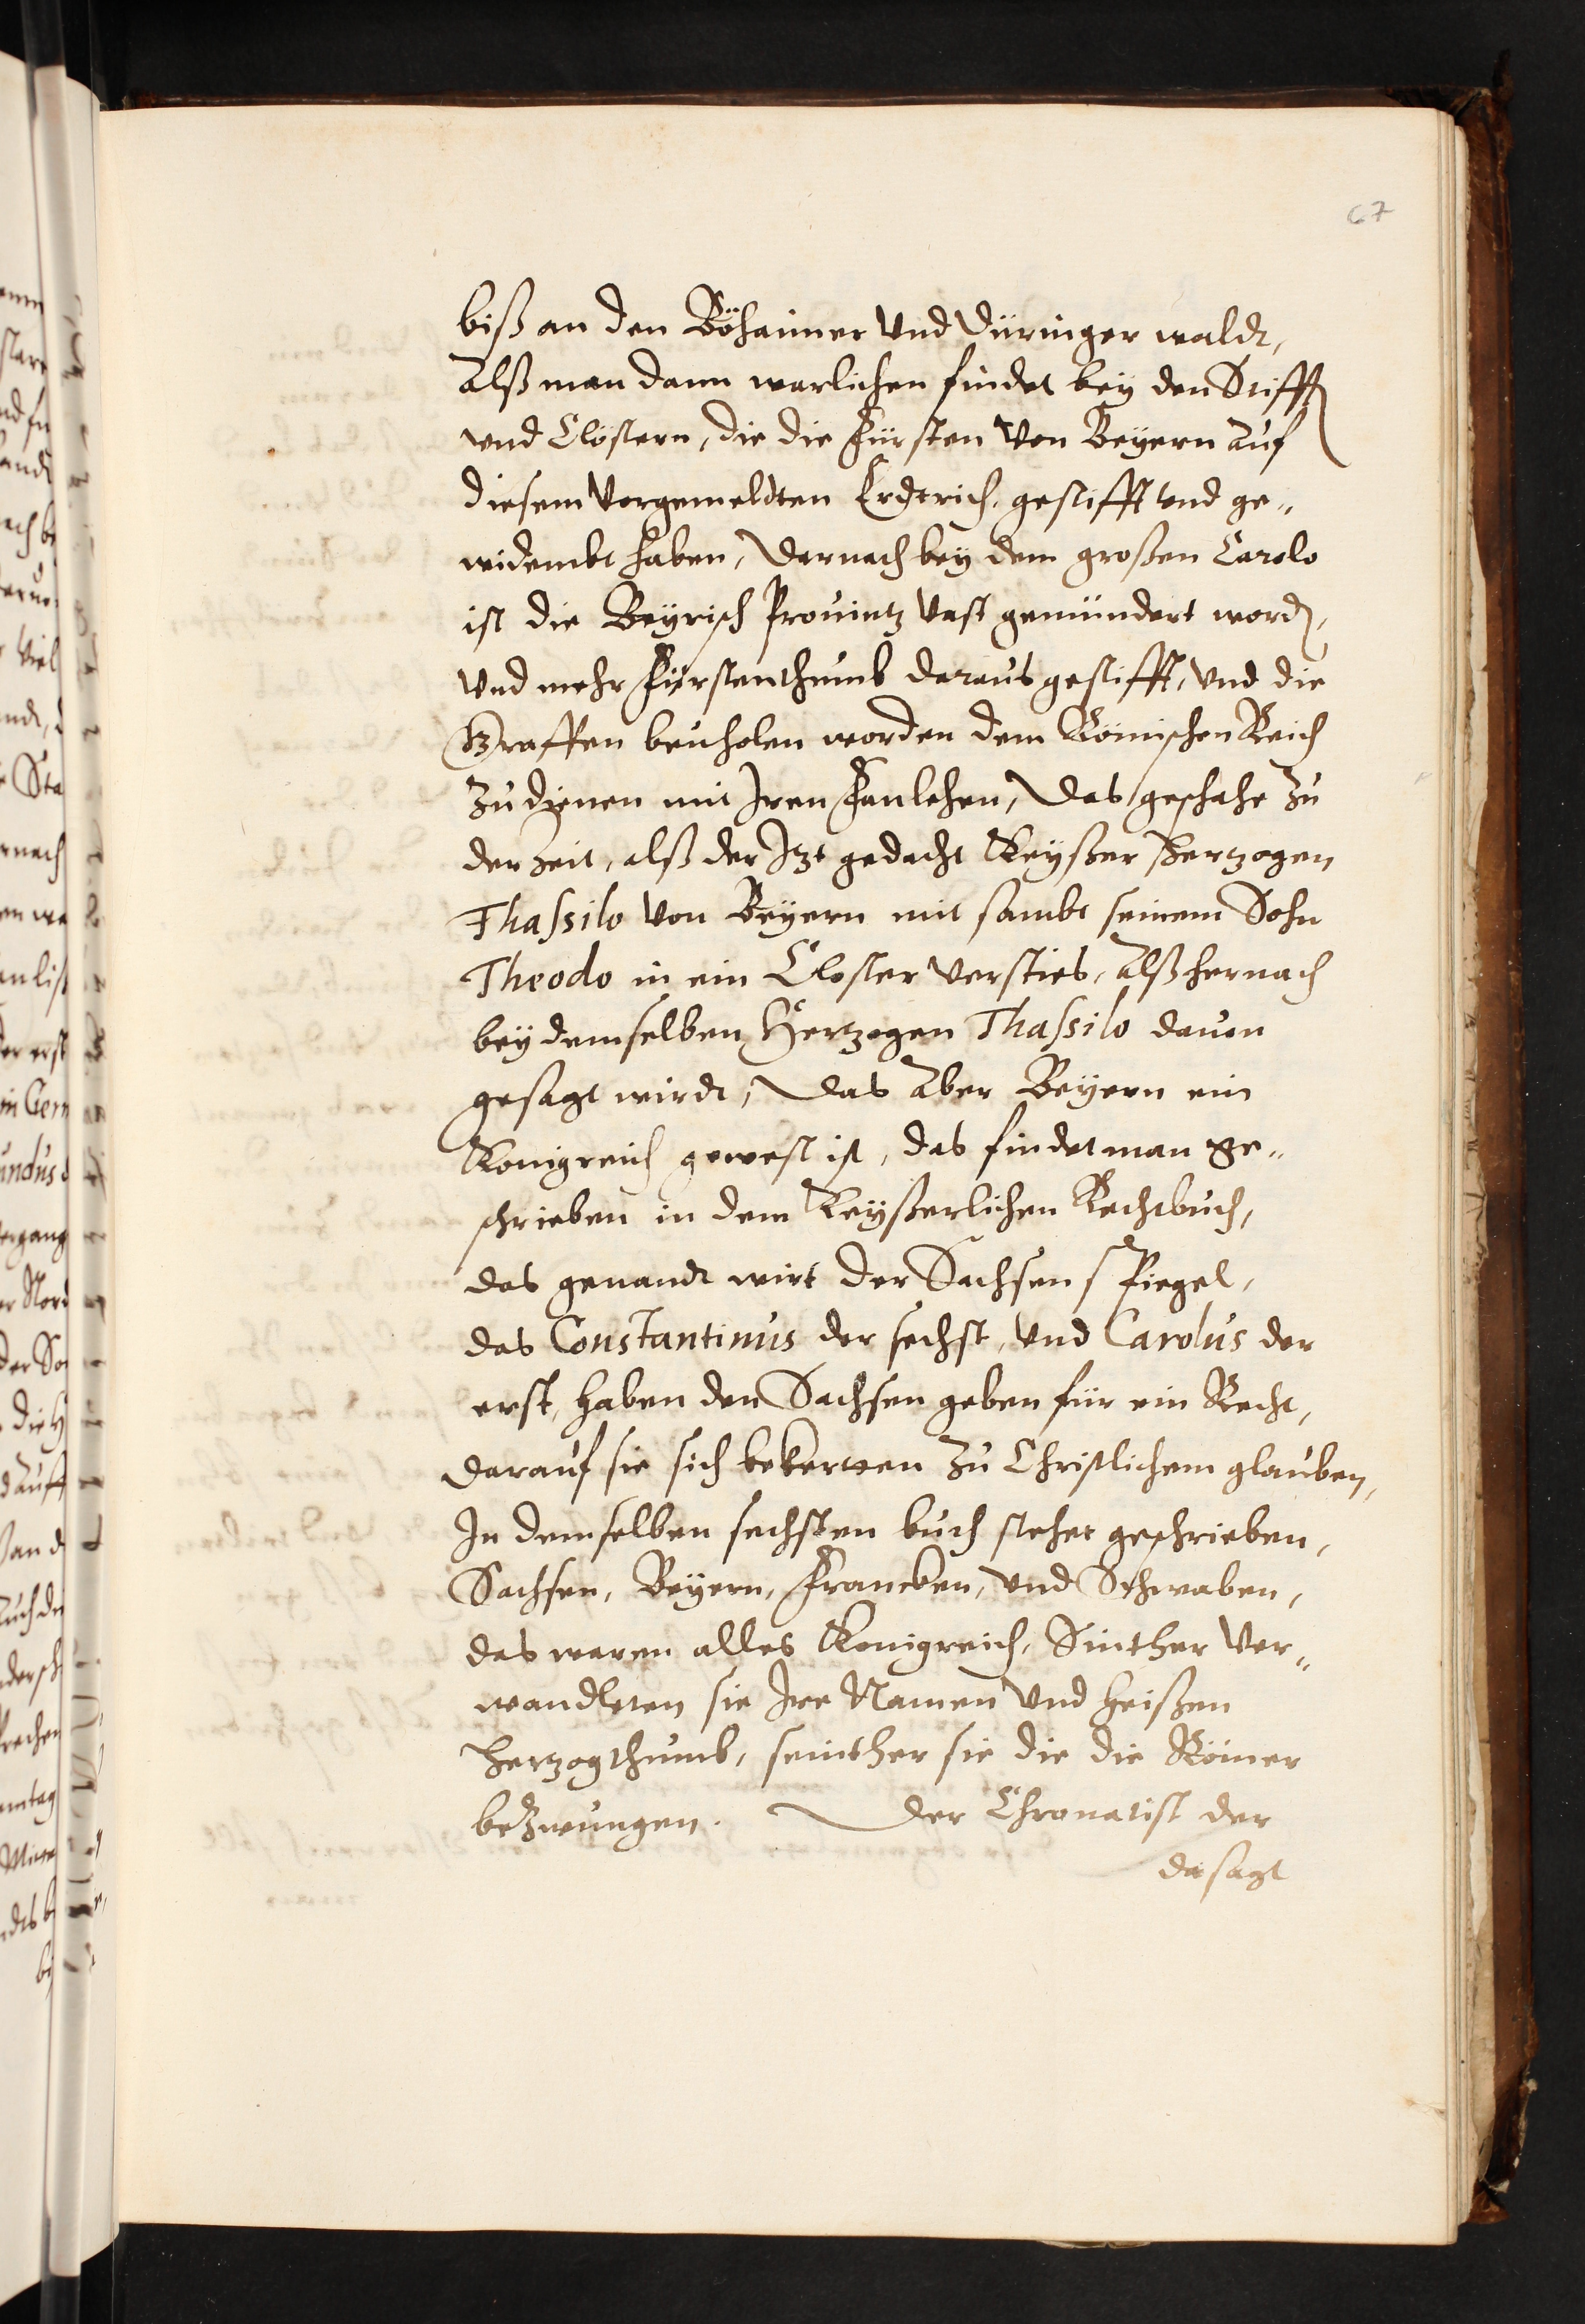 67
biß an den Böhaimer Und Düringer waldt,
Alß man dann warlichen findet bey den Stifftn
und Clöstern, die die Fürsten Von Beyern Auf
diesem Vorgemeldten Erdtrich, gestifft und ge„
widembt haben, Darnach bey dem großen Carolo
ist die Beyrisch Prouintz Vast gemündert wordn,
Und mehr Fürstenthumb daraus gestifft, Und die
Graffen beuholen worden dem Römischen Reich
Zu dienen mit Iren Fanlehen, Das geschahe Zu
der Zeit, alß der Itzt gedacht Keyßer Hertzogen
Thassilo Von Beyern mit sambt seinem Sohn
Theodo in ein Closter Versties, Alß hernach
bey demselben Hertzogen Thassilo dauon
gesagt wirdt, Das Aber Beyern ein
Konigreich gewest ist, das findet man ge„
schrieben in dem Keyßerlichen Rechtbuch,
das genandt wirt der Sachsen sPiegel,
das Constantinus der sechst, und Carolus der
erst, haben den Sachsen geben für ein Recht,
darauf sie sich bekerten Zu Christlichem glauben,
In demselben sechsten buch stehet geschrieben,
Sachsen, Beyern, Francken, und Schwaben,
das waren alles Konigreich, Sinther Ver„
wandleten sie Ire Namen Und heißen
Hertzogthumb, seinther sie die die Römer
beZwungen. Der Chronatist der
da sagt